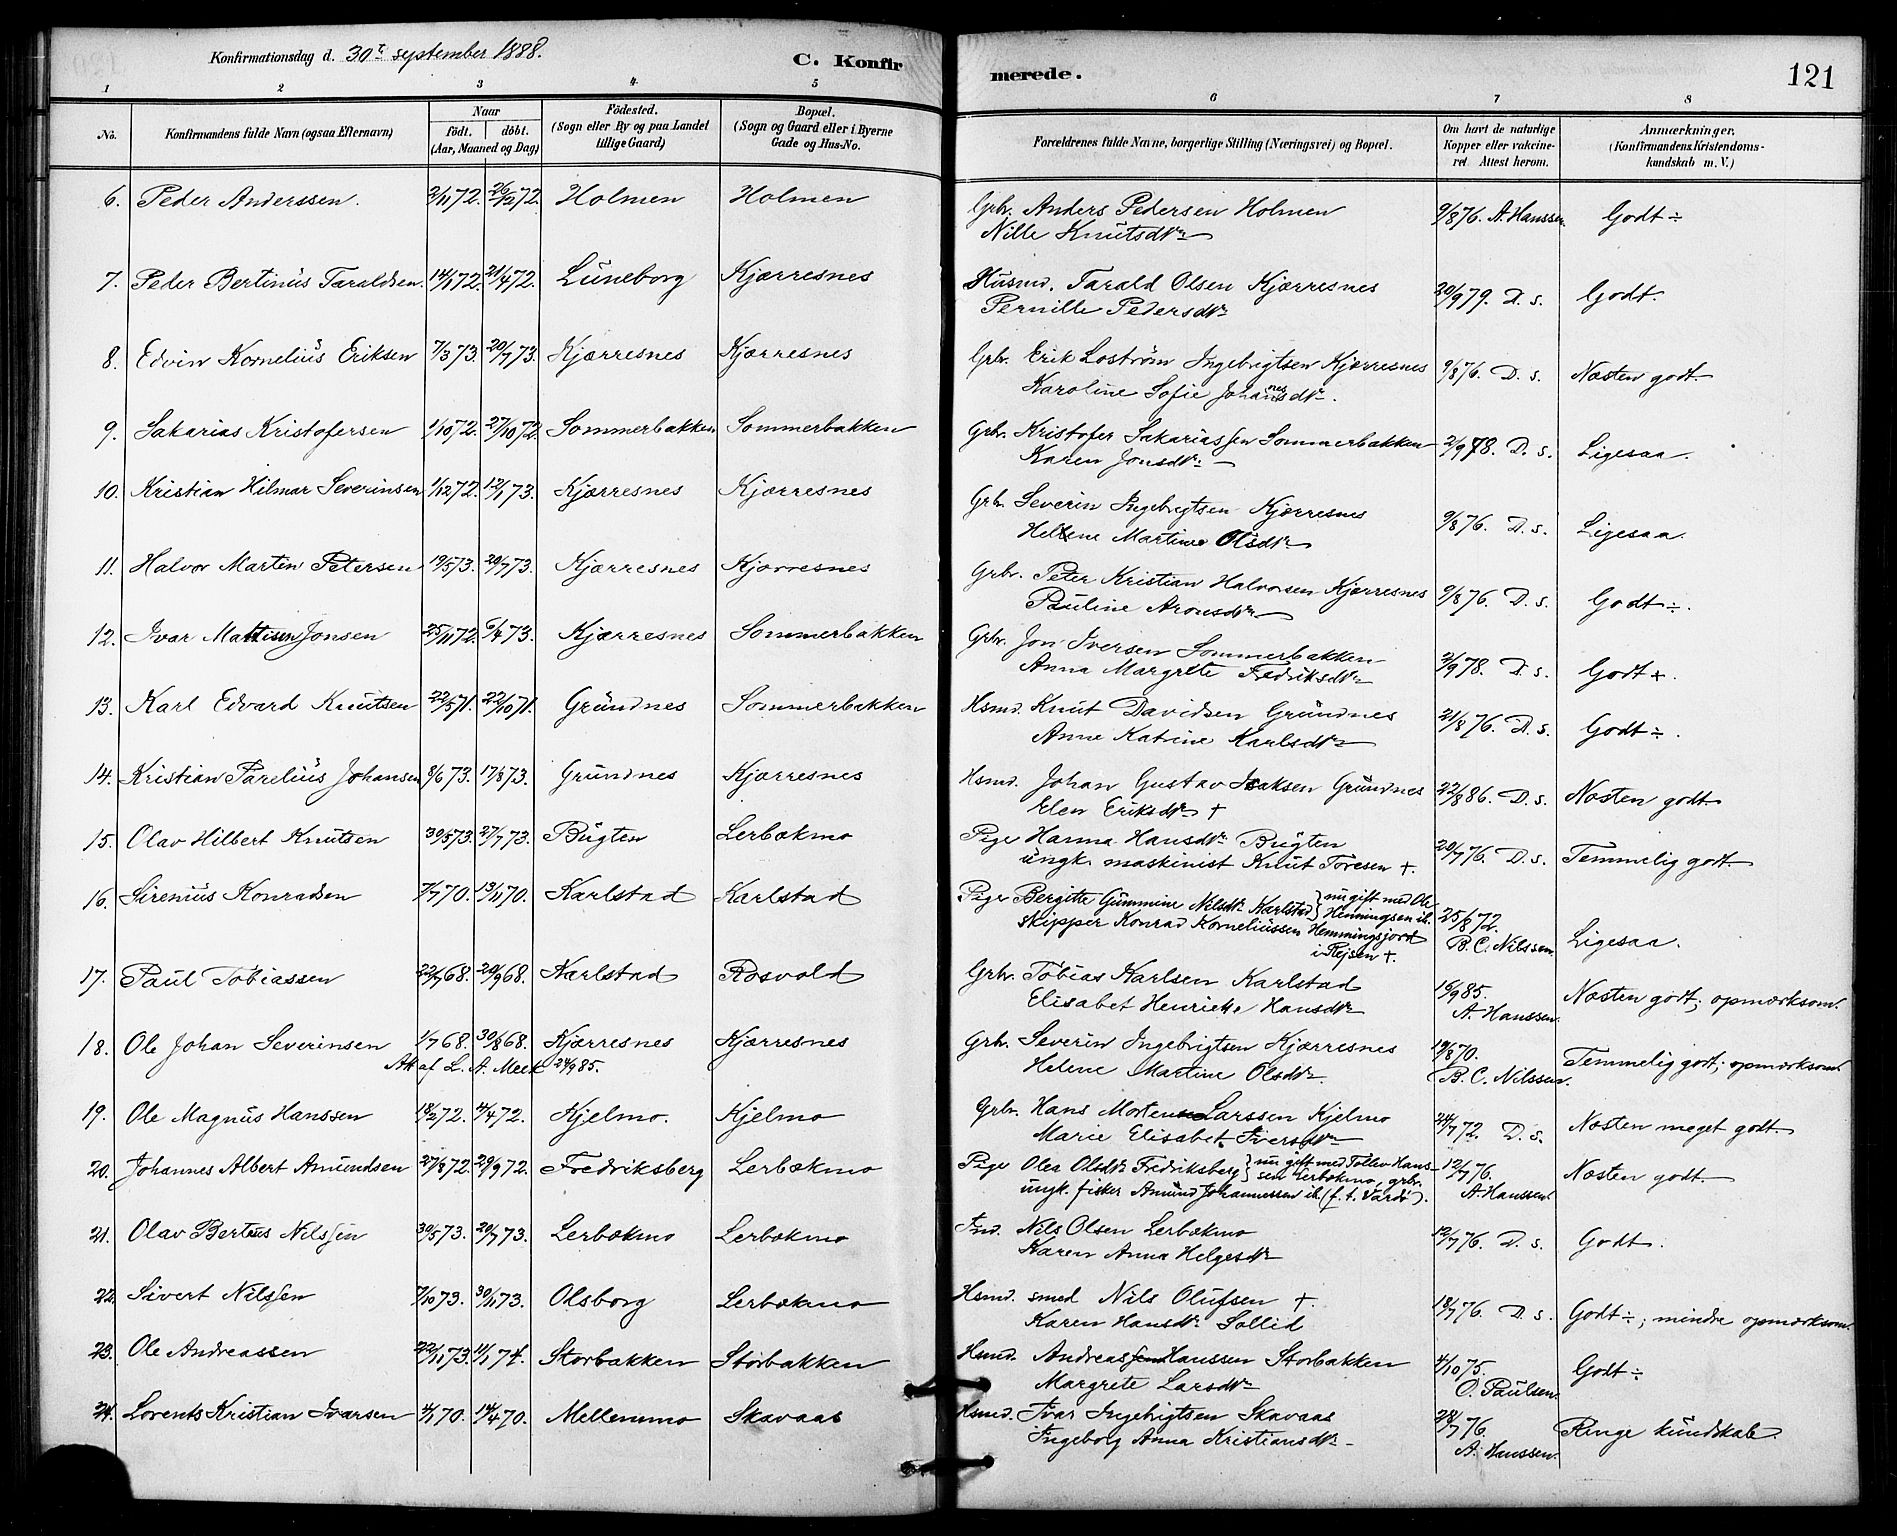 Konfirmationsdag d. 30te september 1888.
C. Konfirmerede.
121
1 2 3 4 5 6 7 8
No.
Konfirmandens fulde Navn (ogsaa Efternavn)
Naar
födt. | döbt.
(Aar, Maaned og Dag)
Födested.
(Sogn eller By og paa Landet
tillige Gaard)
Bopæl.
(Sogn og Gaard eller i Byerne
Gade og Hus-No.
Forældrenes fulde Navne, borgerlige Stilling (Næringsvei) og Bopæl.
Om havt de naturlige
Kopper eller vakcine-
ret. Attest herom.
Anmærkninger,
(Konfirmandens Kristendoms-
kundskab m. V.)
6. Peder Anderssen. 2/11 72. 26/12 72. Holmen Holmen Grbr. Anders Pedersen Holmen 9/8 76. A. Hanssen. Godt ÷
Nille Knutsdtr
7. Peder Bertinus Taraldsen. 14/1 72. 21/4 72. Luneborg Kjærresnes Husmd. Tarald Olsen Kjærresnes 20/9 79. D. s. Godt.
Pernille Pedersdtr
8. Edvin Kornelius Eriksen 7/3 73. 20/7 73. Kjærresnes Kjærresnes Grbr. Erik Loström Ingebrigtsen Kjærresnes 9/8 76. D. s. Næsten godt.
Karoline Sofie Johannesdtr.
9. Sakarias Kristofersen 1/10 72. 27/10 72. Sommerbakken Sommerbakken Grbr. Kristofer Sakariassen Sommerbakken 2/9 78. D. s. Ligesaa.
Karen Jonsdtr
10. Kristian Hilmar Severinsen 1/12 72. 12/1 73. Kjærresnes Kjærresnes Grbr. Severin Ingebrigtsen Kjærresnes 9/8 76. D. s. Ligesaa.
Helene Martine Olsdtr
11. Halvor Martin Petersen 19/5 73. 20/7 73. Kjærresnes Kjærresnes Grbr. Peter Kristian Halvorsen Kjærresnes 9/8 76. D. s. Godt ÷.
Pauline Aronsdtr
12. Ivar Mattisen Jonsen 25/11 72. 6/4 73. Kjærresnes Sommerbakken Grbr. Jon Iversen Sommerbakken 2/9 78. D. s. Godt +.
Anna Margrete Fredriksdtr
13. Karl Edvard Knutsen 22/5 71. 22/10 71. Grundnes Sommerbakken Hsmd. Knut Davidsen Grundnes 21/8 76. D. s. Godt ÷.
Anne Katrine Karlsdtr
14. Kristian Parelius Johansen 8/6 73. 17/8 73. Grundnes Kjærresnes Hsmd. Johan Gustav Isaksen Grundnes 22/8 86. D. s. Næsten godt
Elen Eriksdtr +
15. Olav Hilbert Knutsen 30/5 73. 27/7 73. Bugten Lerbækmo Pige Hanna Hansdtr Bugten 20/7 76. D. s. Temmelig godt.
ungk. maskinist Knut Toresen +.
16. Sirenius Konradsen 7/7 70. 13/11 70. Karlstad Karlstad Pige Bergitte Gummine Nilsdtr Karlstad } nu gift med Ole
Henningsen ib. 25/8 72. Ligesaa.
skipper Konrad Korneliussen Hemmingsjord B. C. Nilssen.
i Rejsen +.
17. Paul Tobiassen 22/7 68. 20/9 68. Karlstad Rosvold Grbr. Tobias Karlsen Karlstad 16/9 85. Næsten godt; opmærksom.
Elisabet Henrikke Hansdtr A. Hanssen.
18. Ole Johan Severinsen 1/7 68. 30/8 68. Kjærresnes Kjærresnes Grbr. Severin Ingebrigtsen Kjærresnes 19/8 70. Temmelig godt; opmærksom.
Att af L. A. Meek 24/9 85. Helene Martine Olsdtr. B. C. Nilssen.
19. Ole Magnus Hanssen 18/2 72. 4/4 72. Kjelmo. Kjelmo Grbr. Hans Morten Larssen Kjelmo 24/7 72. D. s. Næsten meget godt.
Marie Elisabet Iversdtr
20. Johannes Albert Amundsen 27/8 72. 29/9 72. Fredriksberg Lerbækmo Pige Olea Olsdtr Fredriksberg } nu gift med Tollev Hans-
sen Lerbækmo, grbr. 12/7 76. Næsten godt.
ungk. fisker Amund Johannessen ib. (f. t. Vardö). A. Hanssen.
21. Olav Berteus Nilssen 30/5 73. 20/7 73. Lerbækmo Lerbækmo Ind. Nils Olsen Lerbækmo 12/7 76. D. s. Godt.
Karen Anna Helgesdtr
22. Sivert Nilssen 7/10 73. 30/11 73. Olsborg Lerbækmo Hsmd. smed Nils Olufsen +. 18/7 76. D. s. Godt ÷; mindre opmærksom.
Karen Hansdtr Sollid
23. Ole Andreassen 22/11 73. 11/1 74. Storbakken Storbakken Hsmd. Andreas Hanssen Storbakken 4/10 75. Godt ÷
Margrete Larsdtr O. Paulsen.
24. Lorents Kristian Ivarsen 4/1 70. 14/4 70. Mellemmo Skavaas Hsmd. Ivar Ingebrigtsen Skavaas 28/7 76. Ringe kundskab.
Ingeborg Anna Kristiansdtr A. Hanssen.